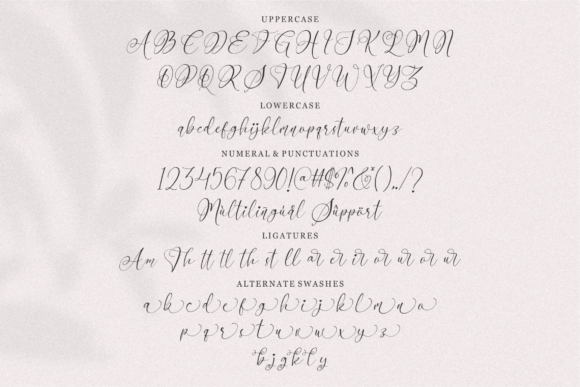 UPPERCASE
A B C D E F G H I J K L M N
O P Q R S T U V W X Y Z
LOWERCASE
abcdefghijklmnopqrstuvwxyz
NUMERAL & PUNCTUATIONS
1234567890!@#$%&*()../?
Mùltilingúål Sûppört
LIGATURES
Am Th tt tl th st ll ar er ir or ur or ur
ALTERNATE SWASHES
a b c d e f g h i j k l m n o
p q r s t u v w x y z
b j g k l y